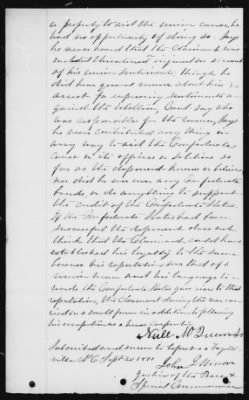 or property to aid the union cause, he
had no opportunity of doing so. Says
he never heard that the Claimant was
molested threatened injured on account
of his union sentiments, though he
did hear general rumor about his
arrest for expressing sentiments
against the rebellion, Cant say who
was responsible for the rumor, Says
he never contributed any thing in
any way to aid the Confederate
cause or its officers or soldiers so
far as the deponent knows or believes,
nor did he own any Confederate
bonds or do anything to support
the credit of the Confederate States.
If the Confederate States had been
successful the deponent does not
think that the Claimant could have
established his loyalty to the same
because his reputation was that of a
union man and his language to-
wards the Confederate States gave rise to that
reputation, the claimant during the war car-
ried on a small farm in addition to following
his occupation as a house Carpenter.
Neill Mc
Subscribed and sworn to before me Fayette
ville N.C. Sept 20 1871
John
Justice of the Peace &
Special Commissioner